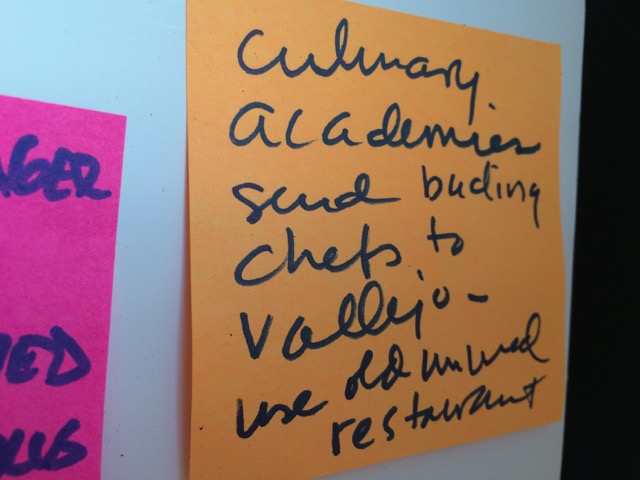 Culinary
academies
send buding
chefs to
Vallejo-
use old unused
restaurant
NGER